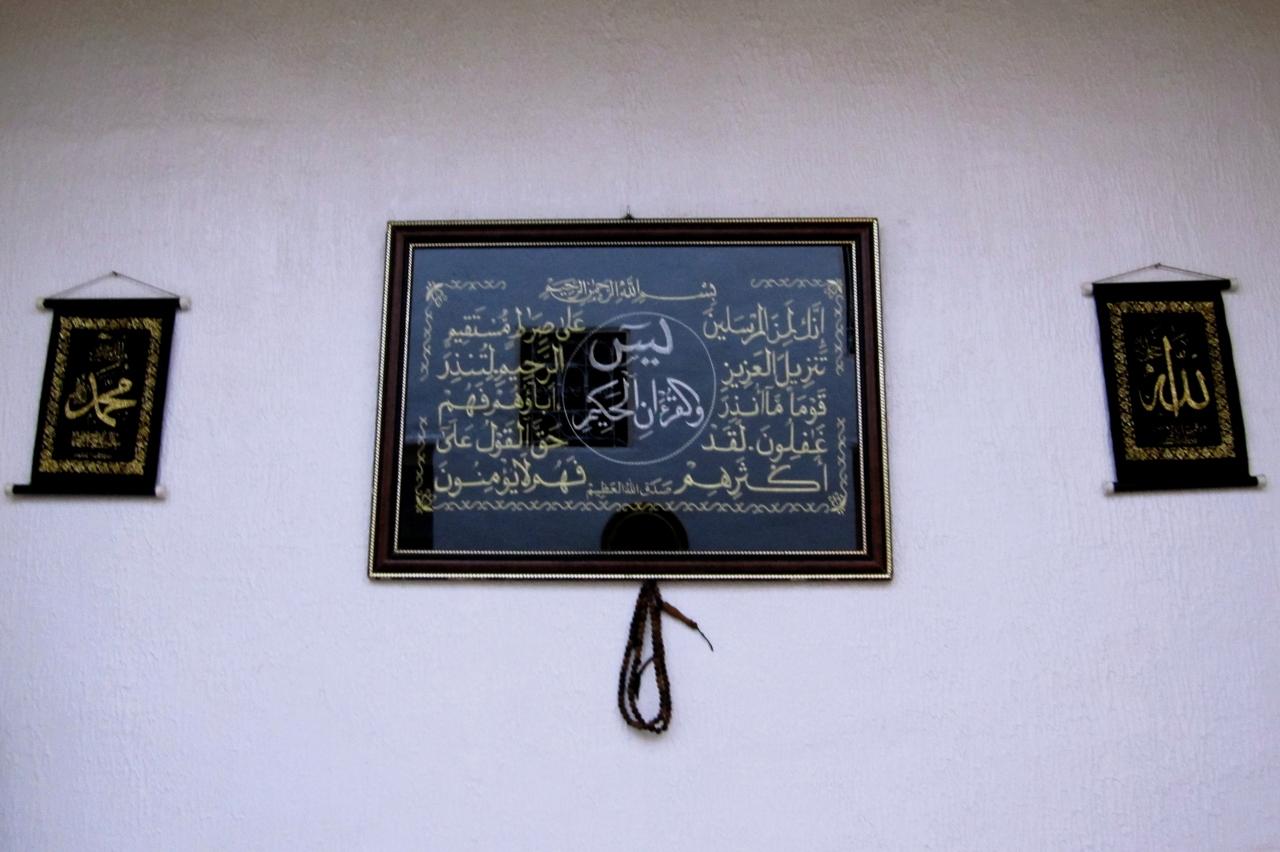 الله
بسم الله الرحمن الرحيم
يسٓ
والقرءان الحكيم
إنك لمن المرسلين على صراط مستقيم
تنزيل العزيز الرحيم لتنذر
قوما ما أنذر آباؤهم فهم
غفلون. لقد حق القول على
أكثرهم فهم لا يؤمنون
صدق الله العظيم
محمد